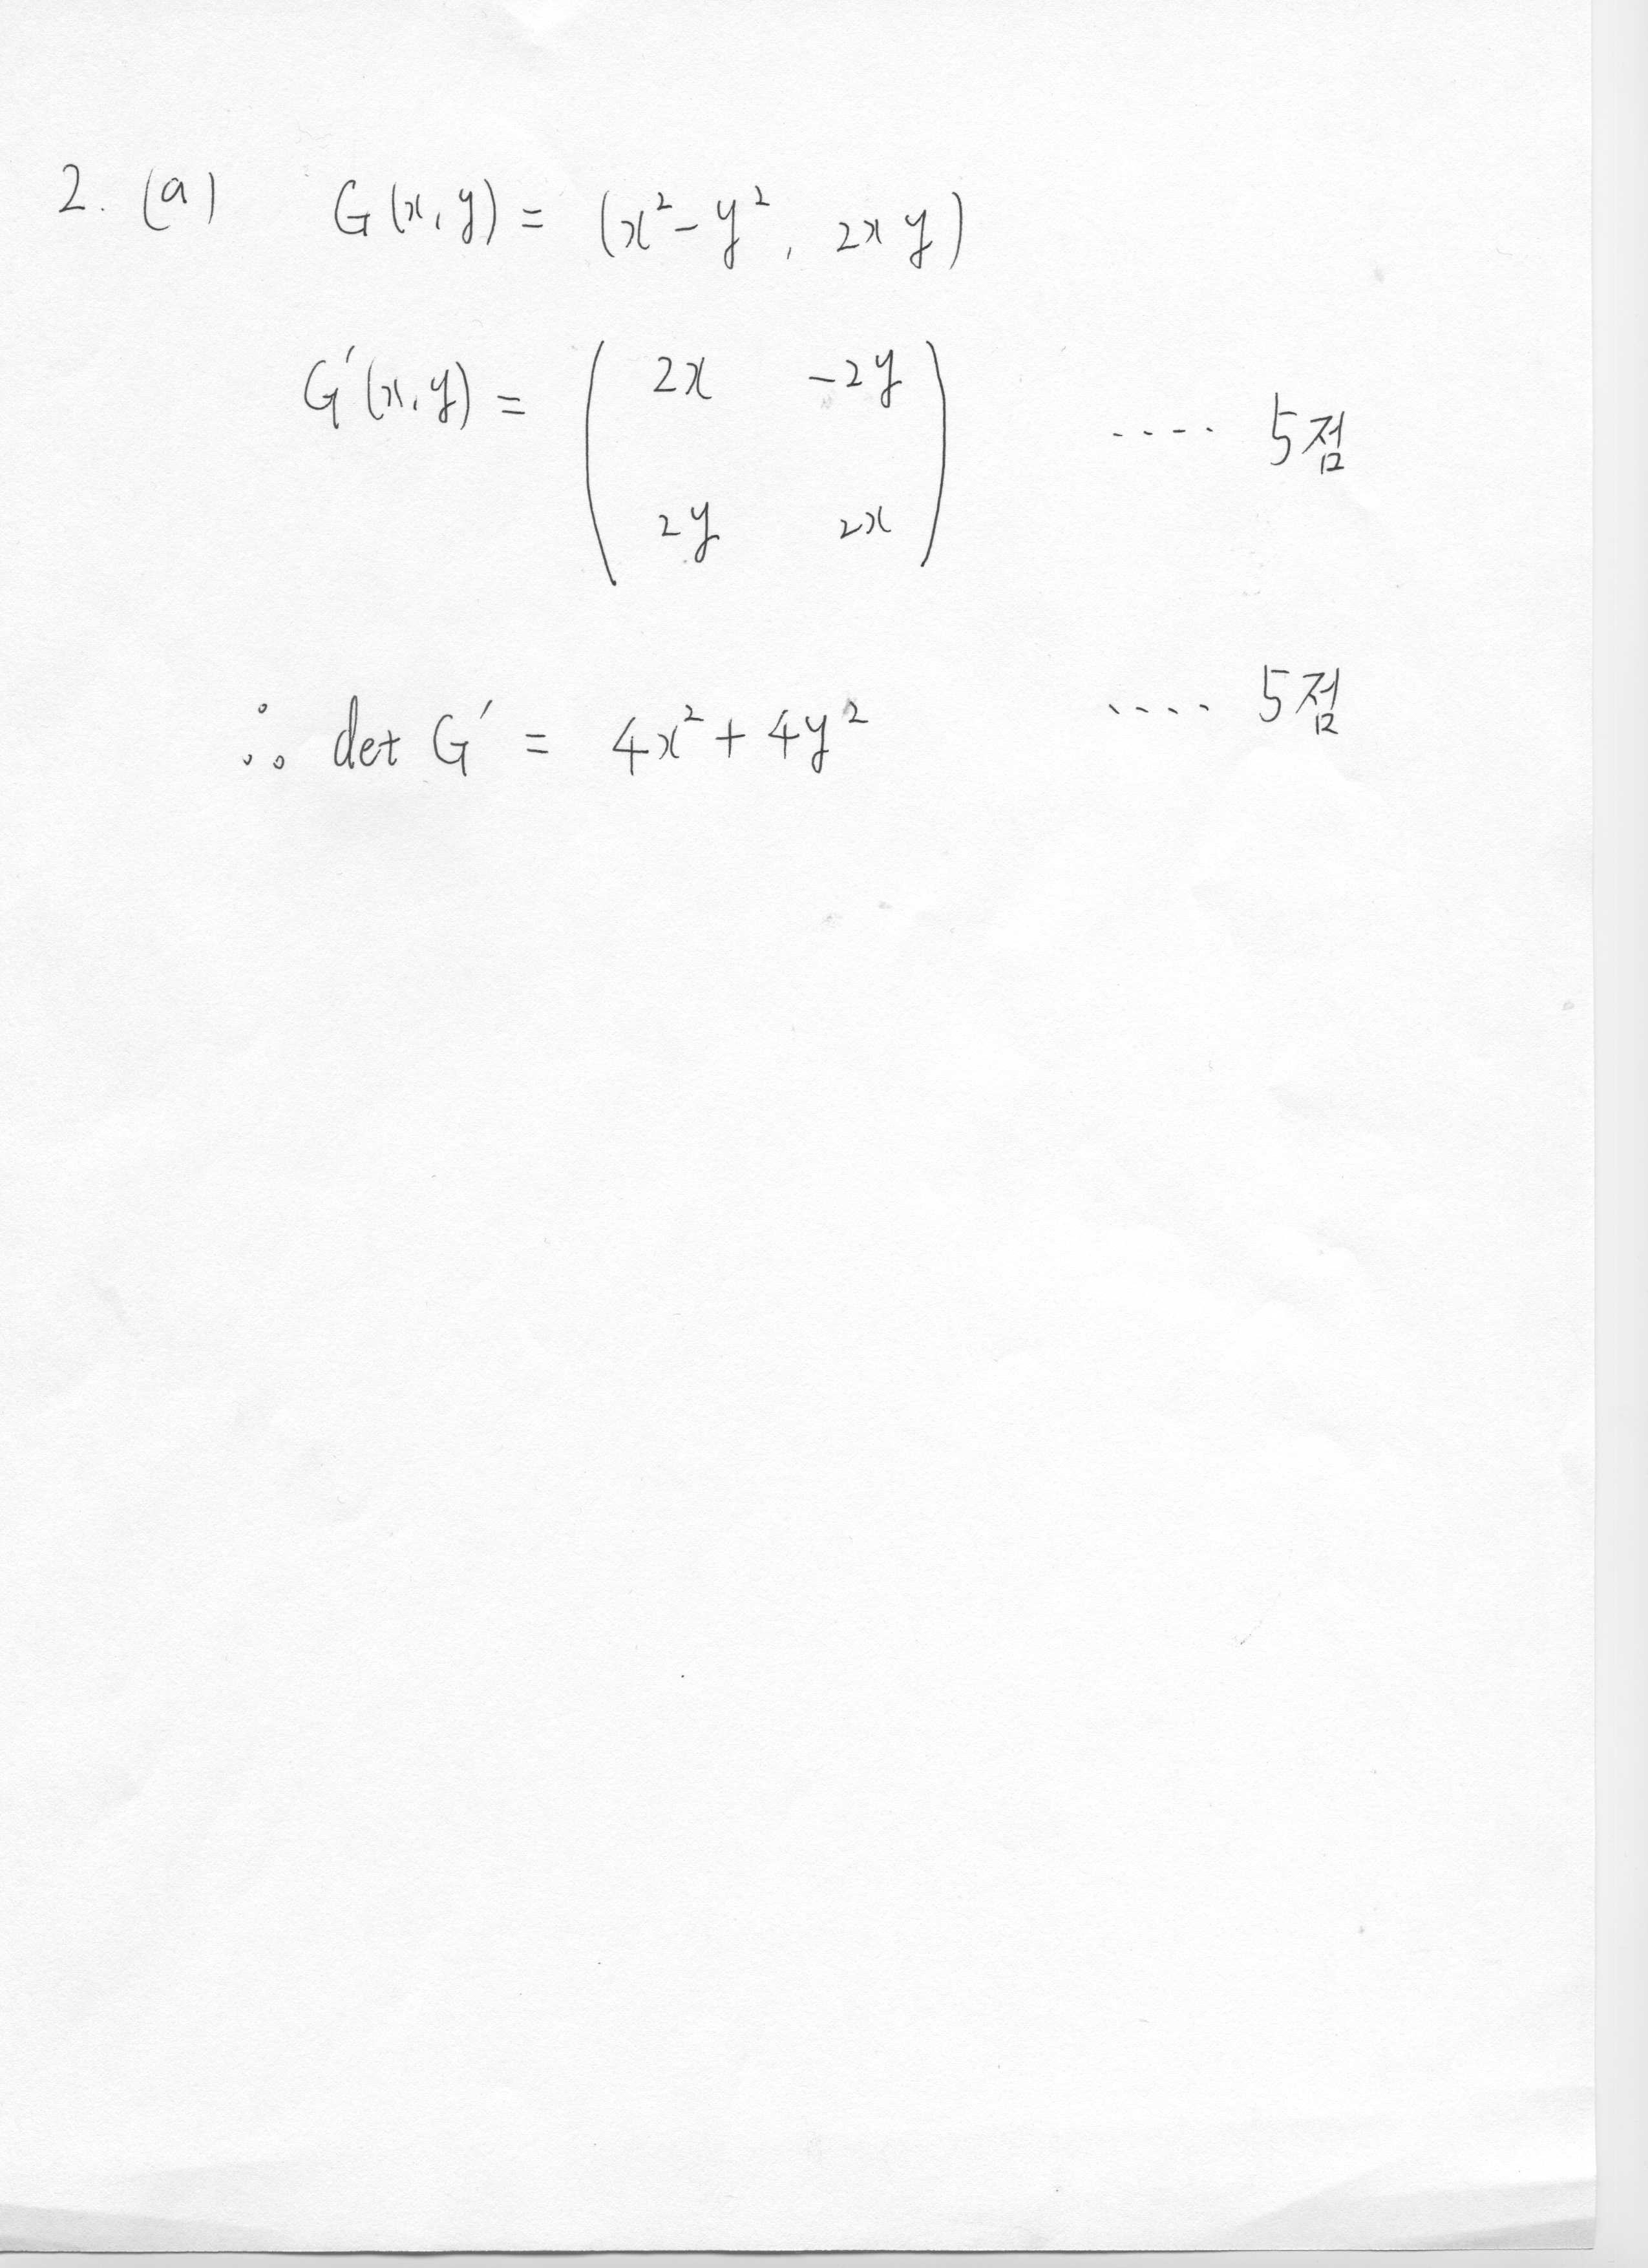 2. (a) G(x, y) = (x² - y², 2xy)
G'(x, y) = ( 2x -2y
2y 2x ) .... 5점
∴ det G' = 4x² + 4y² .... 5점